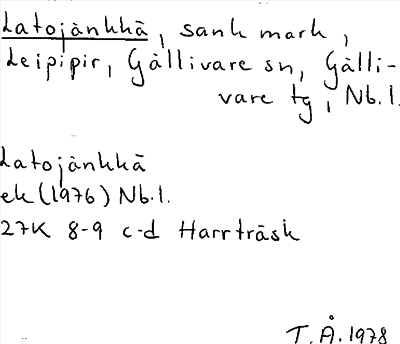 Latojänkkä, sank mark,
Leipipir, Gällivare sn, Gälli-
vare tg, Nb.l.
Latojänkkä
ek (1976) Nb.l.
27K 8-9 c-d Harrträsk
T.Å. 1978